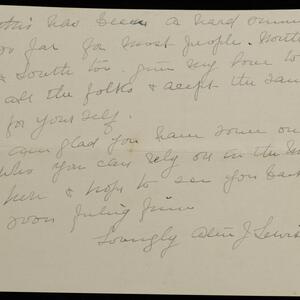 this has been a hard
so far for most people. North
& South too. give my love to
all the folks & accept the same
for your self.
am glad you have some one
who you can rely on in the
here & hope to see you back
soon feeling fine
Lovingly J Lewis